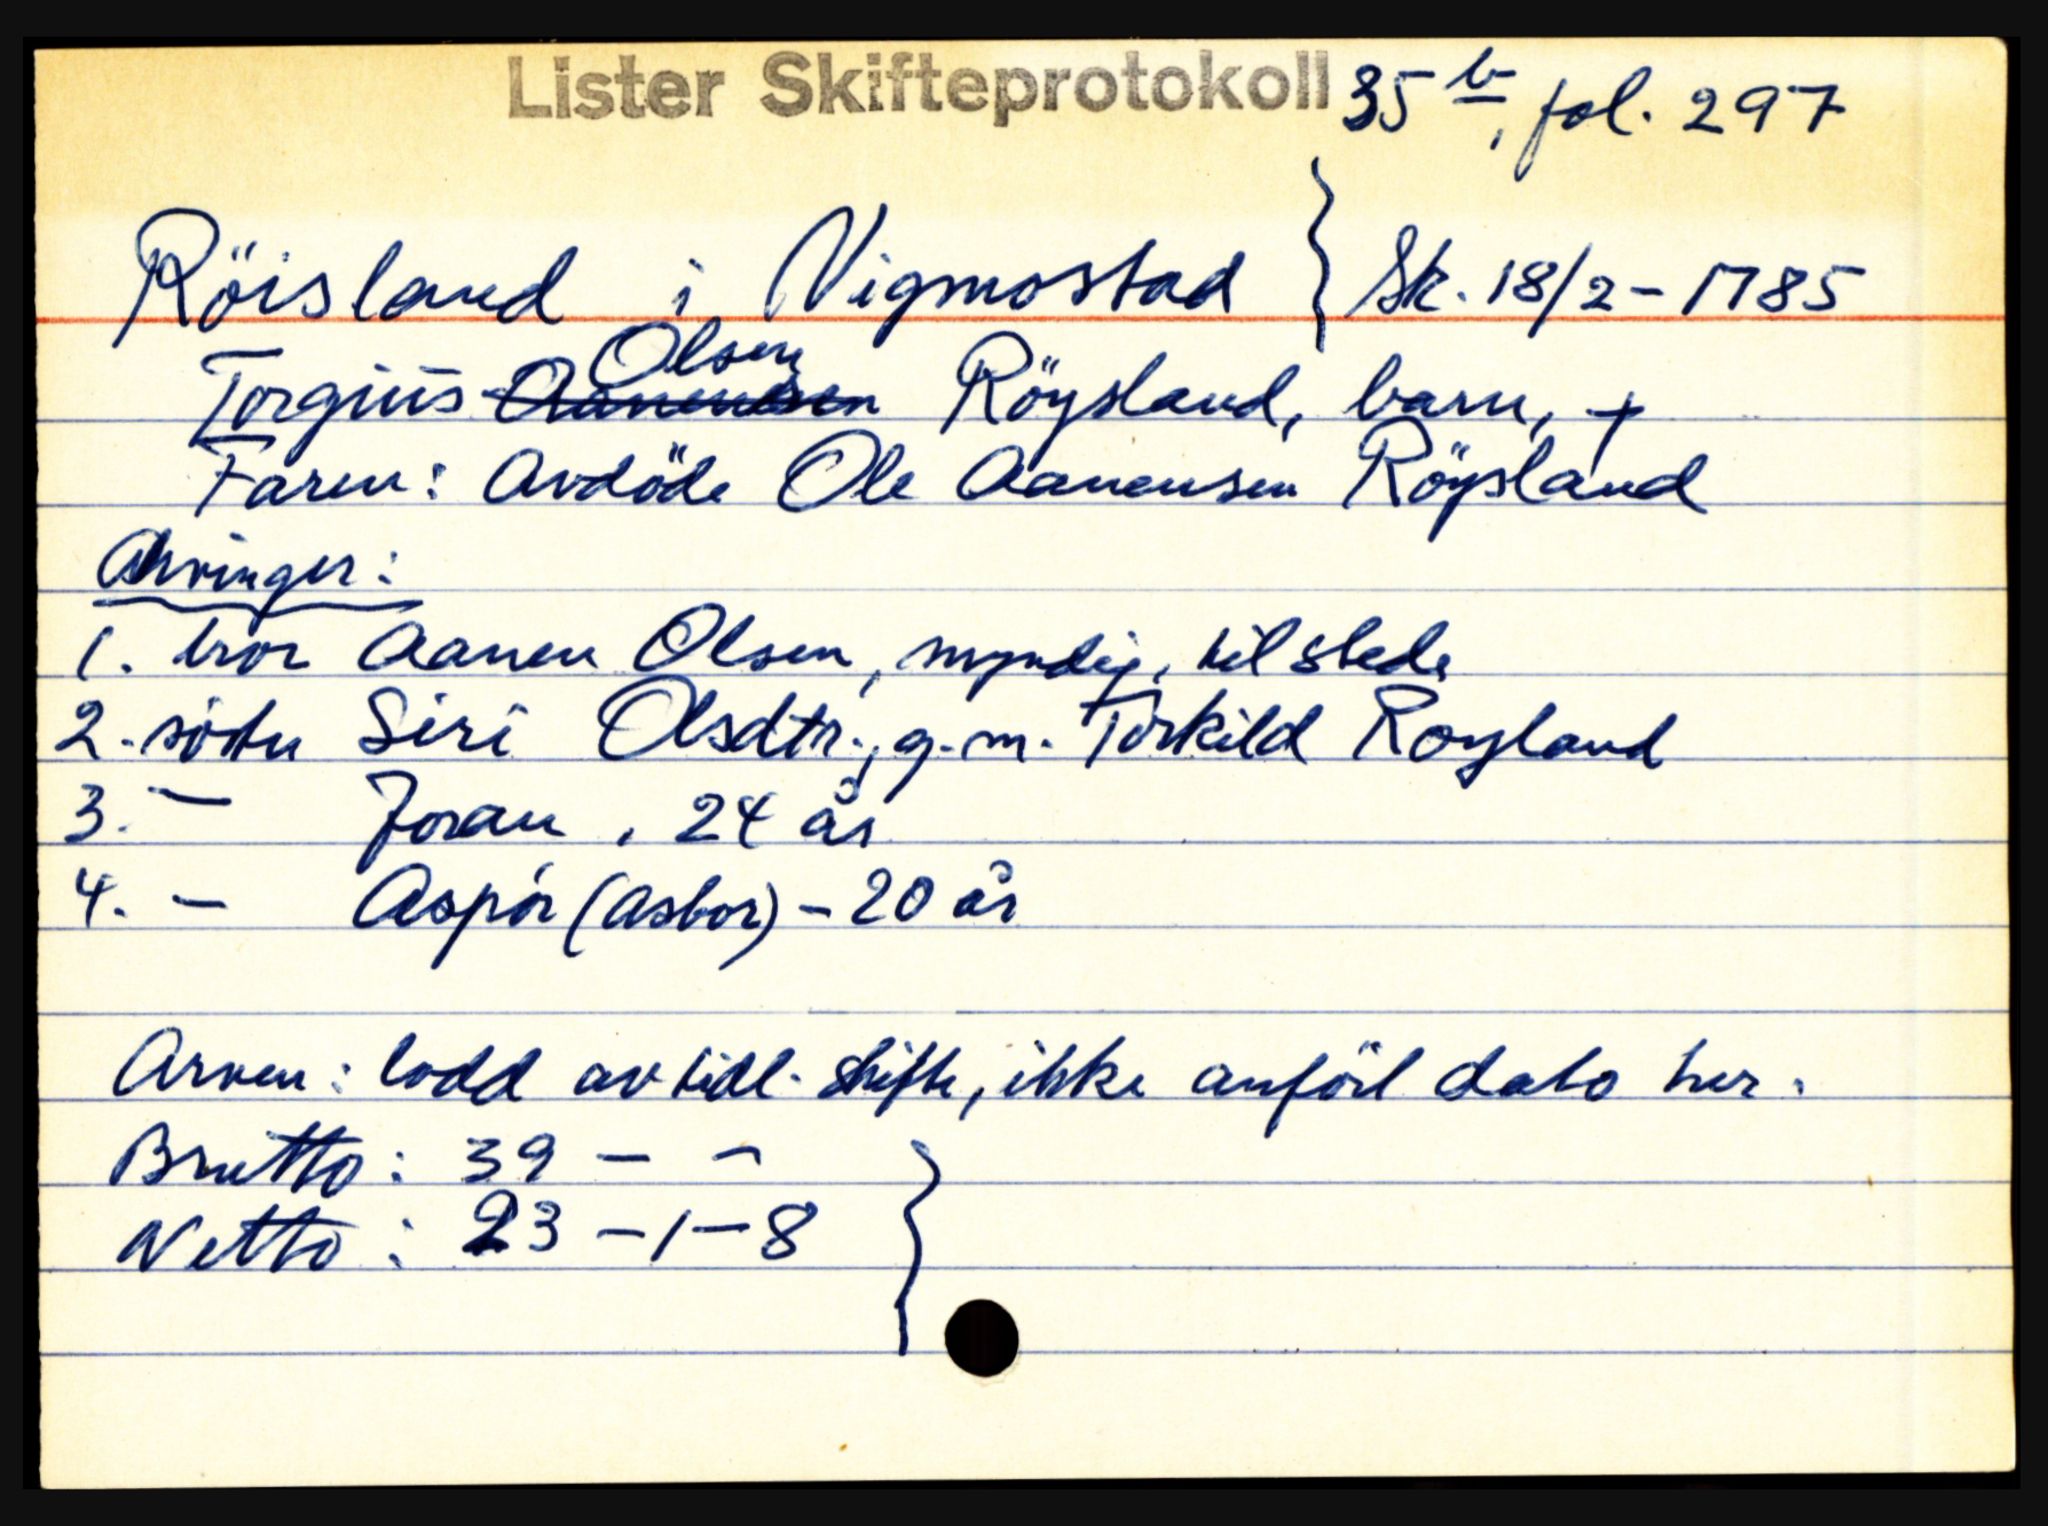 Lister Skifteprotokoll 35 b, fol. 297
Röisland i Vigmostad } Sk. 18/2 - 1785
Olsen
Torgius Aanensen Röysland, barn, +
Faren: Avdöde Ole Aanensen Röysland
Arvinger:
1. bror Aanen Olsen, myndig, tilstede
2. söster Siri Olsdtr., g.m. Torkild Royland
3. — Joran, 24 år
4. — Aspór (Asbor) - 20 år
Arven: lodd av tidl. skifte, ikke anfört dato her.
Brutto: 39 — —
Netto: 23 - 1 - 8 }